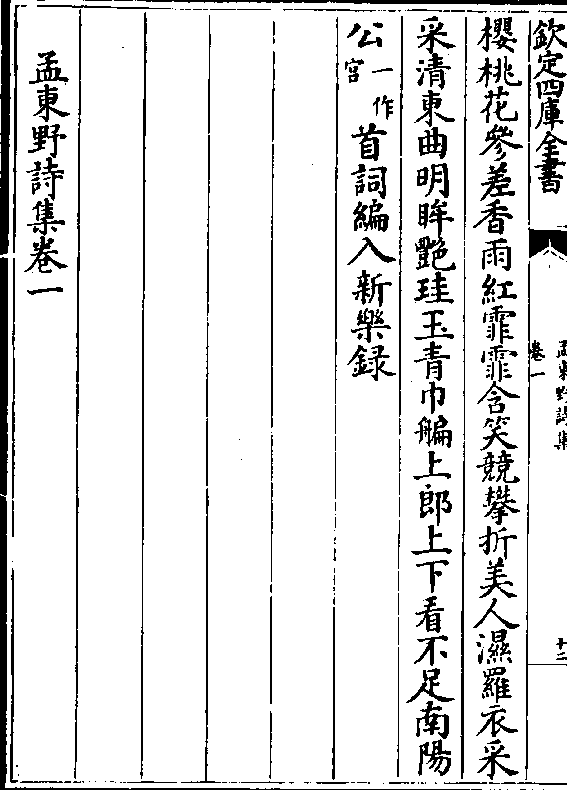 欽定四庫全書
孟東野詩集
卷一
十二
櫻桃花參差香雨紅霏霏含笑競攀折美人濕羅衣采
采清東曲明眸艷珪玉青巾艑上郎上下看不足南陽
公一作宮首詞編入新樂録
孟東野詩集卷一